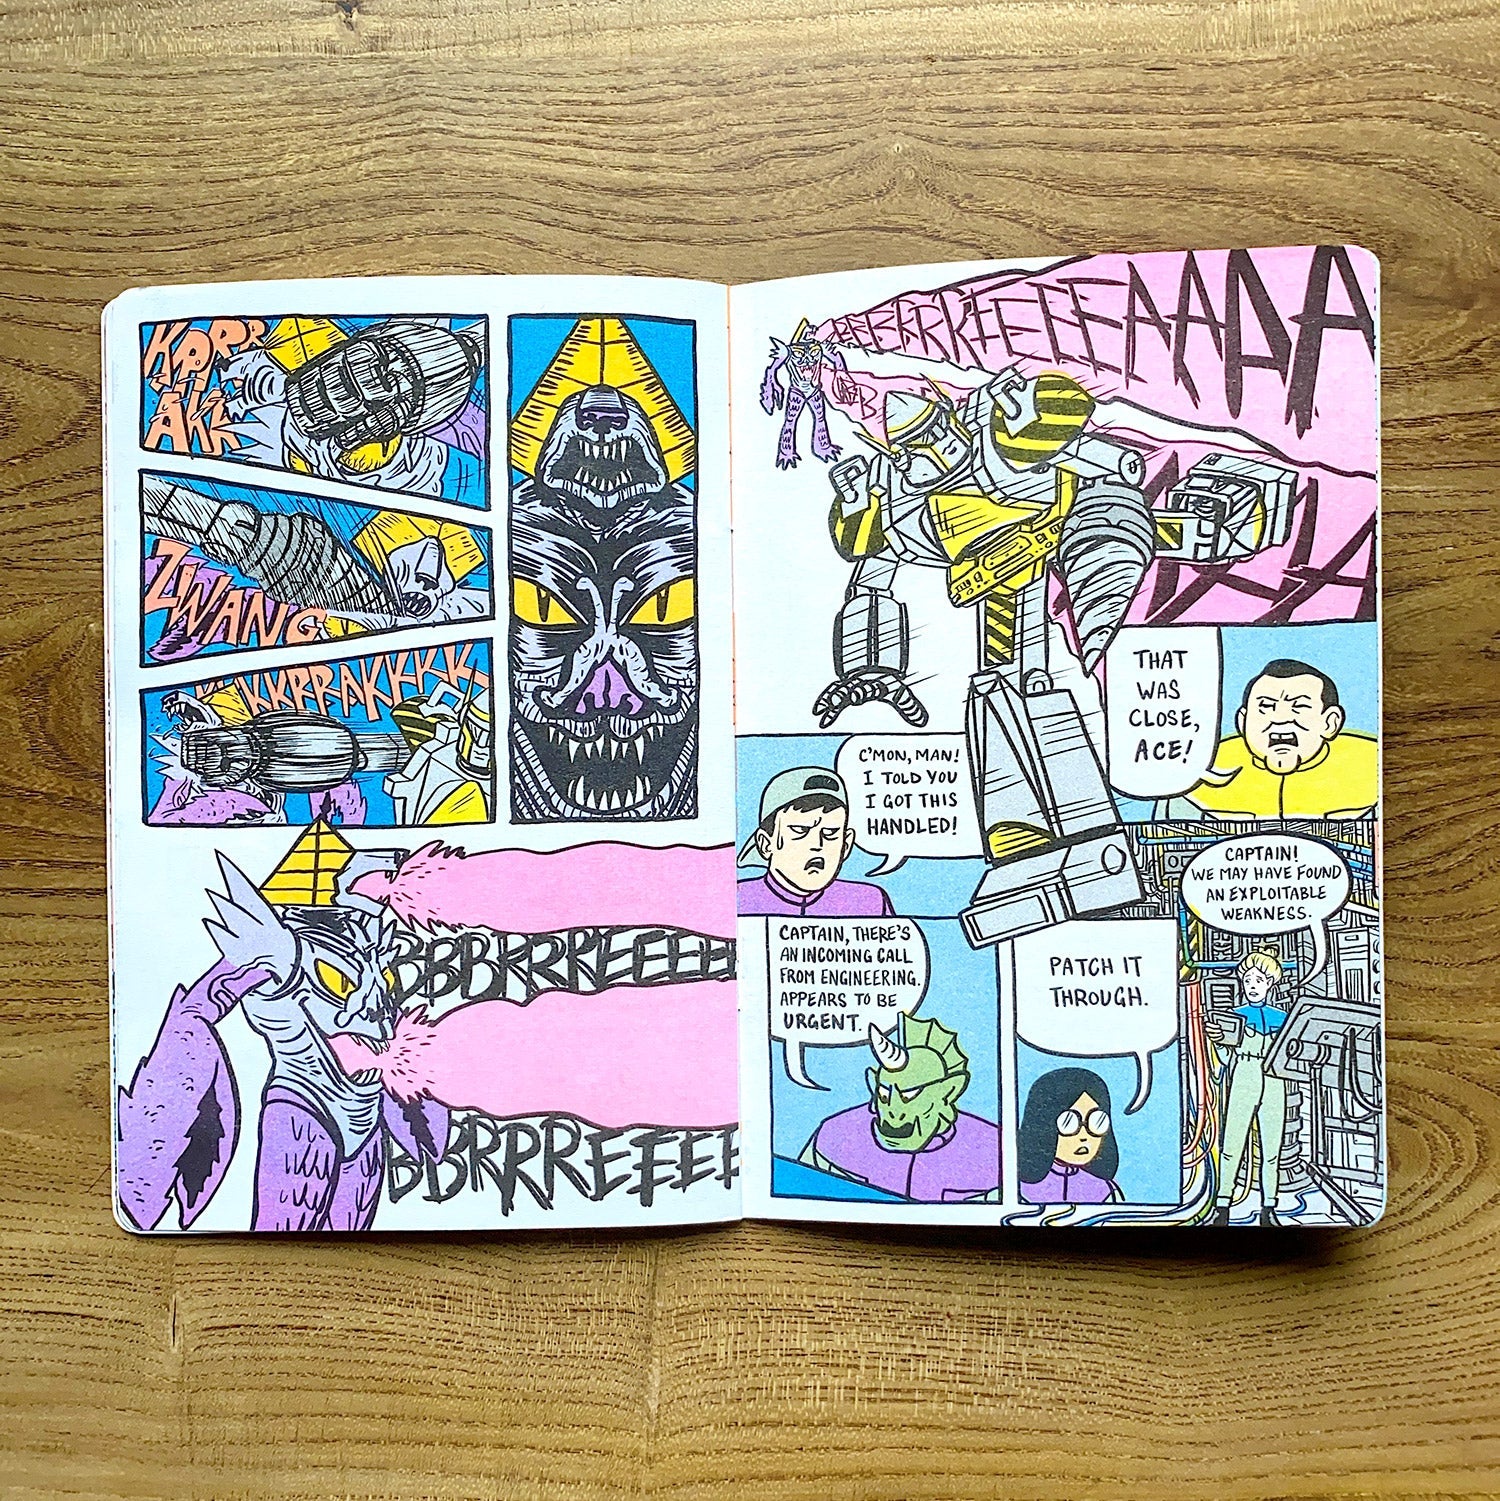 KRRRR
AKK
ZWANG
KKKRRAKKKK
BBBRRREEEEE
BBRRREEEE
THAT
WAS
CLOSE,
ACE!
C'MON, MAN!
I TOLD YOU
I GOT THIS
HANDLED!
CAPTAIN, THERE'S
AN INCOMING CALL
FROM ENGINEERING.
APPEARS TO BE
URGENT.
PATCH IT
THROUGH.
CAPTAIN!
WE MAY HAVE FOUND
AN EXPLOITABLE
WEAKNESS.